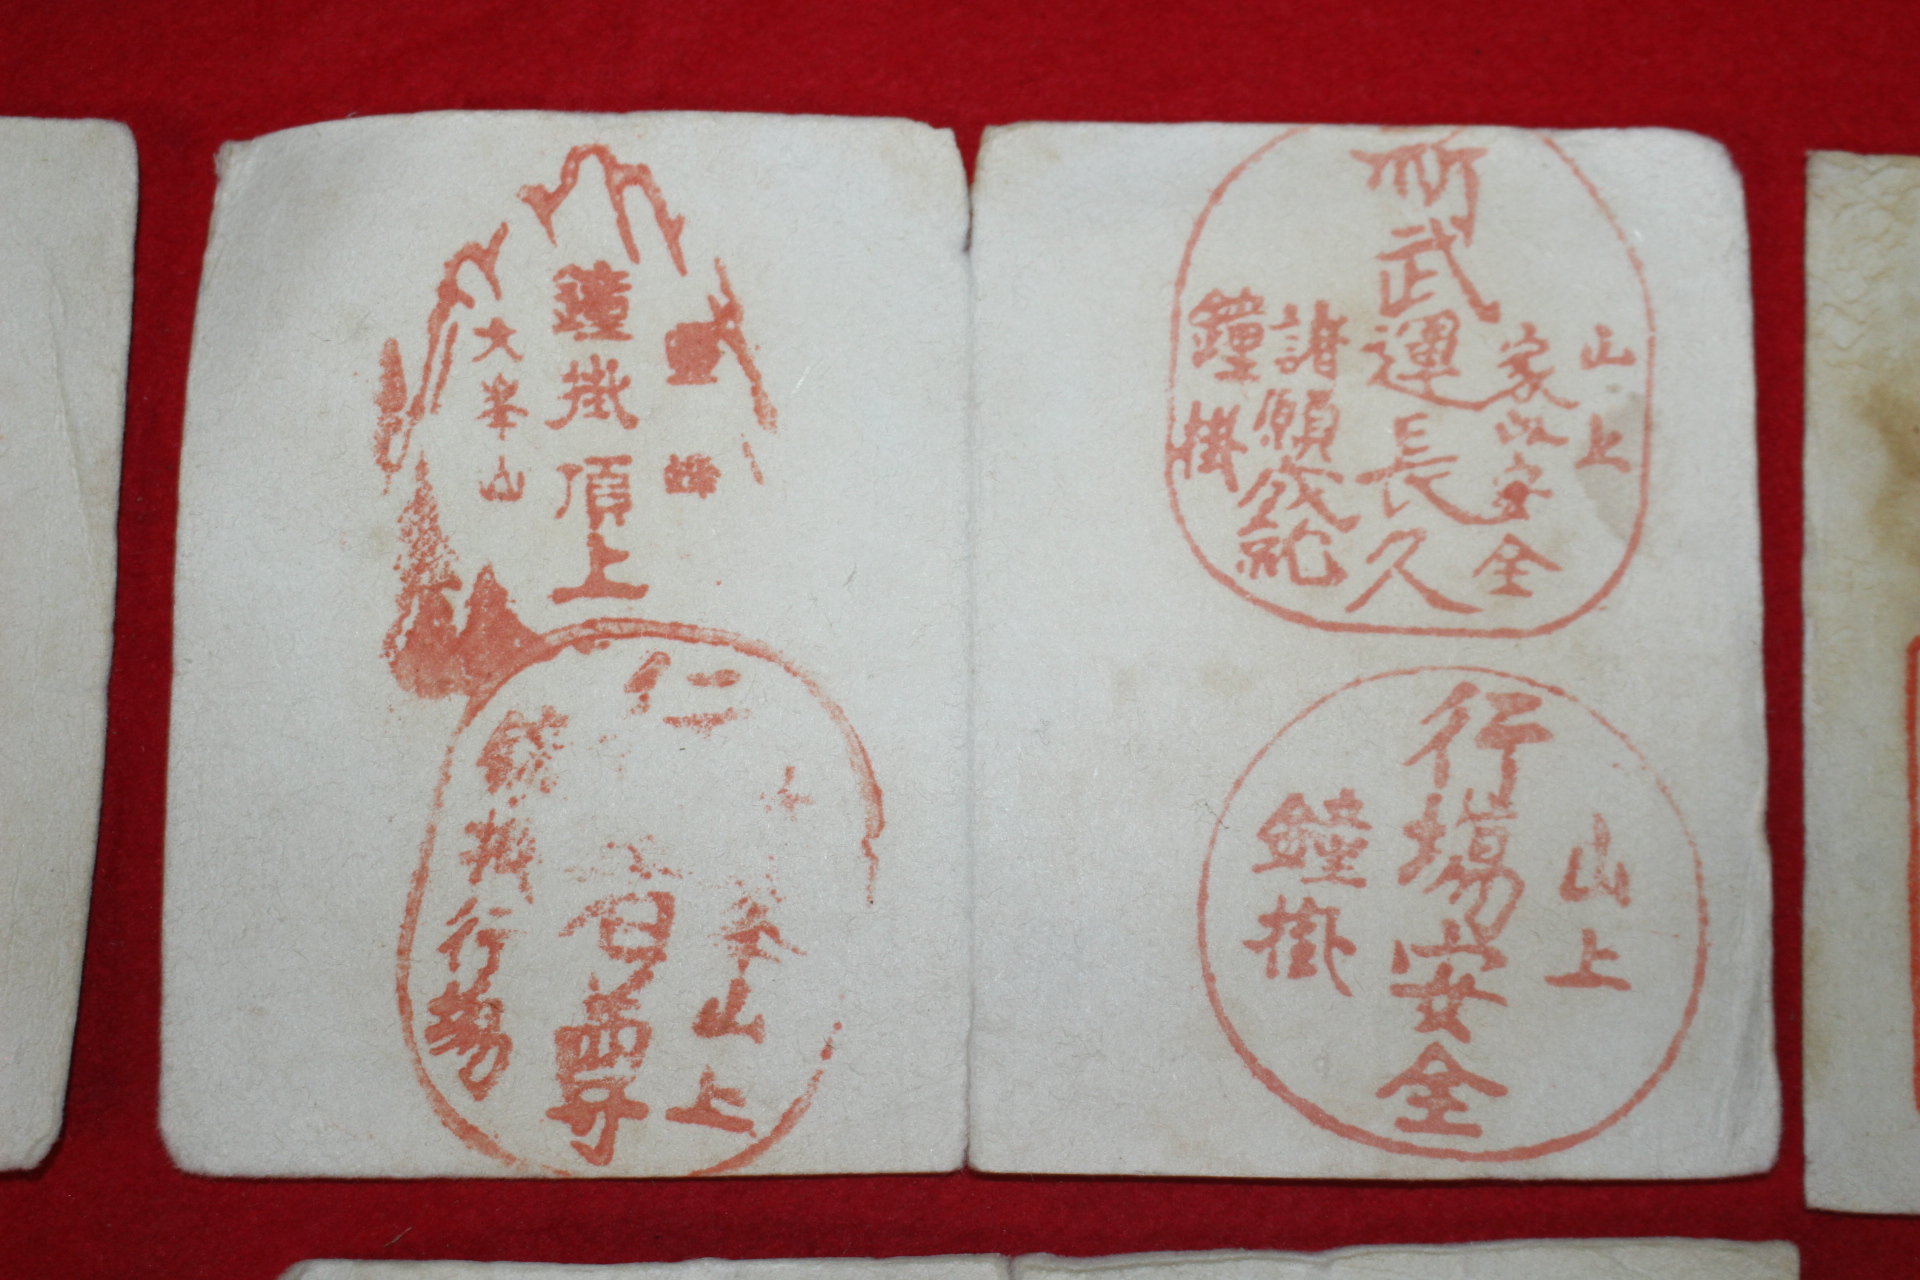 山上
家内安全
祈武運長久
諸願成就
鐘掛
山上
行場安全
鐘掛
鐘掛頂上
大峯山
山上
尊
鐘掛行場